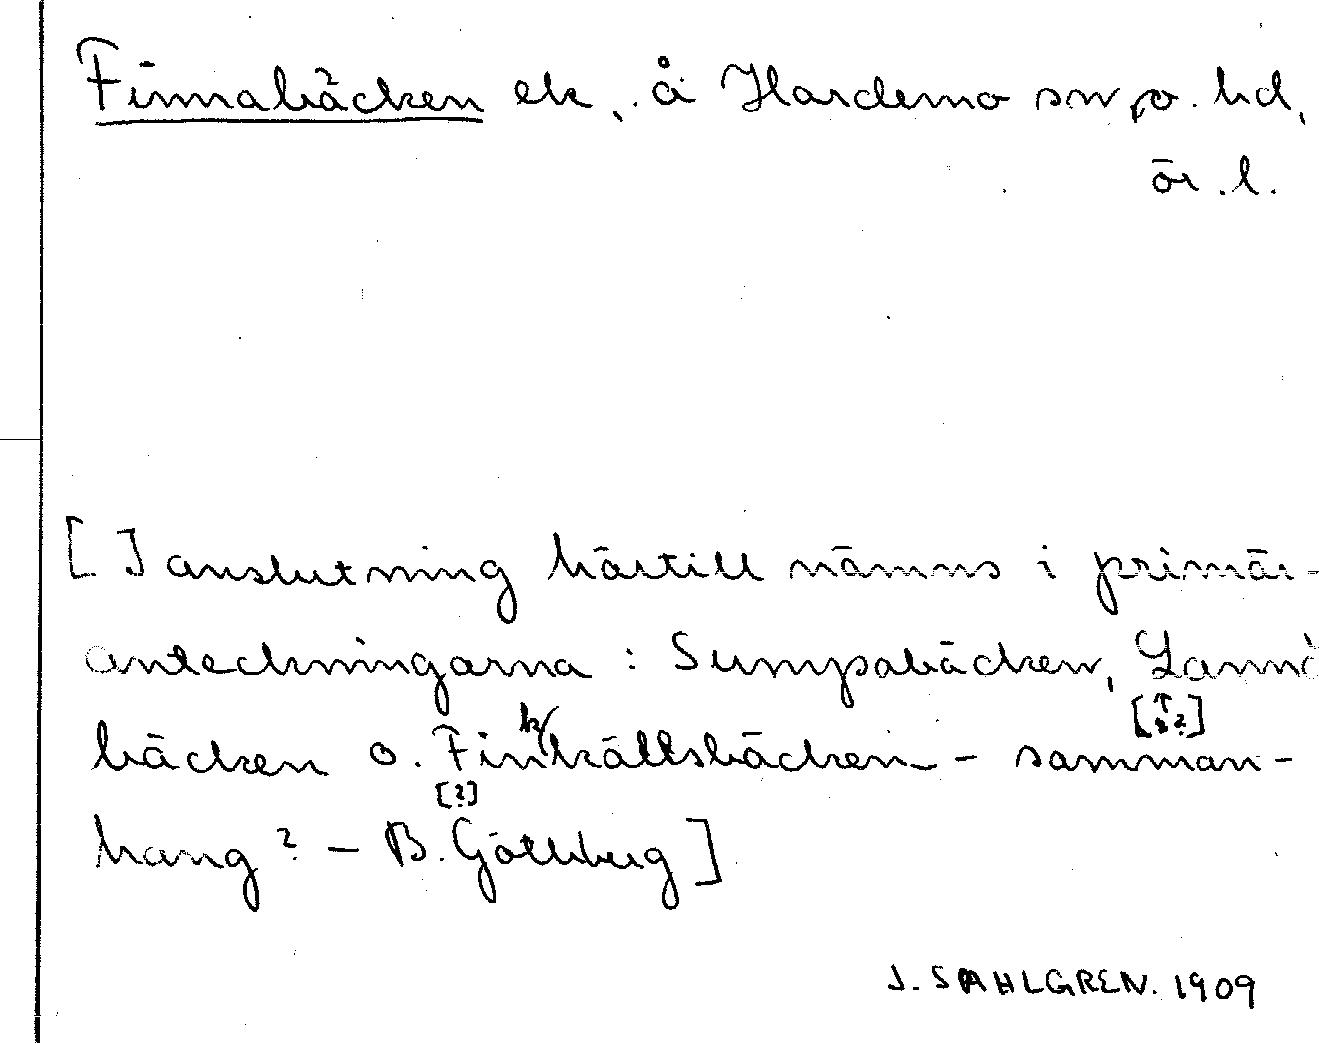 Finnabäcken ek, å Hardemo sn, ö. hd,
ör. l.
[ I anslutning härtill nämns i primär-
anteckningarna : Sumpabäcken, Lannä
[↑ ?]
bäcken o. Finkällsbäcken - samman-
k/
[?]
hang? - B. Göthberg]
J. SAHLGREN. 1909